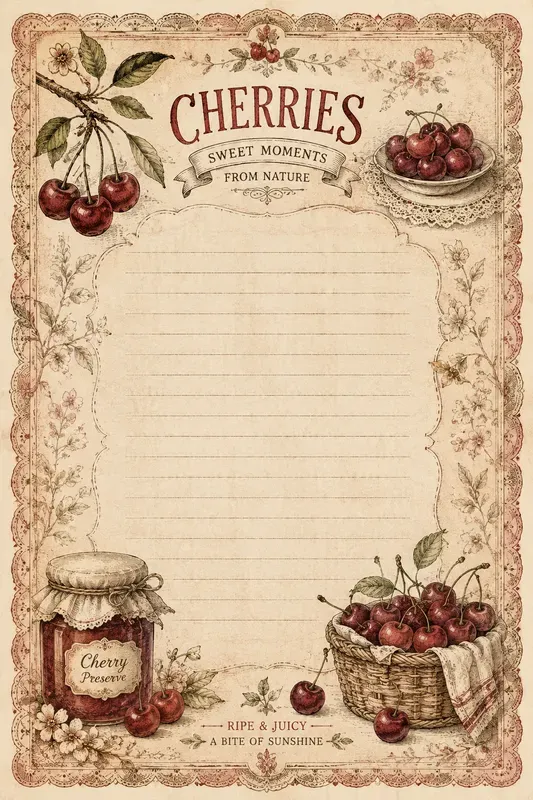 CHERRIES
SWEET MOMENTS
FROM NATURE
Cherry
Preserve
RIPE & JUICY
A BITE OF SUNSHINE